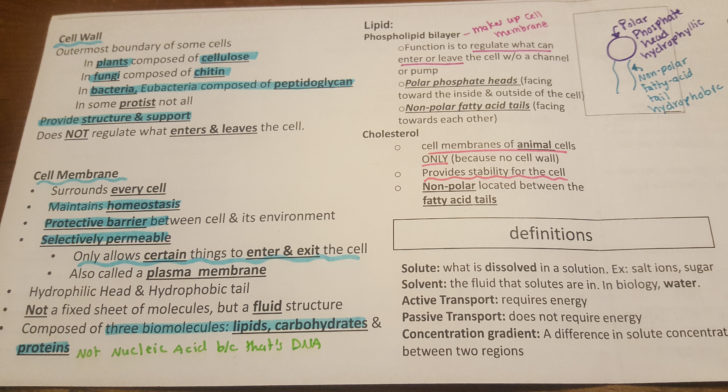 Cell Wall
Outermost boundary of some cells
In plants composed of cellulose
In fungi composed of chitin
In bacteria, Eubacteria composed of peptidoglycan
In some protist not all
Provide structure & support
Does NOT regulate what enters & leaves the cell.
Cell Membrane
• Surrounds every cell
• Maintains homeostasis
• Protective barrier between cell & its environment
• Selectively permeable
• Only allows certain things to enter & exit the cell
• Also called a plasma membrane
• Hydrophilic Head & Hydrophobic tail
• Not a fixed sheet of molecules, but a fluid structure
• Composed of three biomolecules: lipids, carbohydrates &
proteins Not Nucleic Acid b/c that's DNA
Lipid:
Phospholipid bilayer – make up cell
membrane
o Function is to regulate what can
enter or leave the cell w/o a channel
or pump
o Polar phosphate heads (facing
toward the inside & outside of the cell)
o Non-polar fatty acid tails (facing
towards each other)
Cholesterol
o cell membranes of animal cells
ONLY (because no cell wall)
o Provides stability for the cell
o Non-polar located between the
fatty acid tails
Polar
Phosphate
head
hydrophyllic
Non-polar
Fatty-acid
tail
hydrophobic
definitions
Solute: what is dissolved in a solution. Ex: salt ions, sugar
Solvent: the fluid that solutes are in. In biology, water.
Active Transport: requires energy
Passive Transport: does not require energy
Concentration gradient: A difference in solute concentrat
between two regions